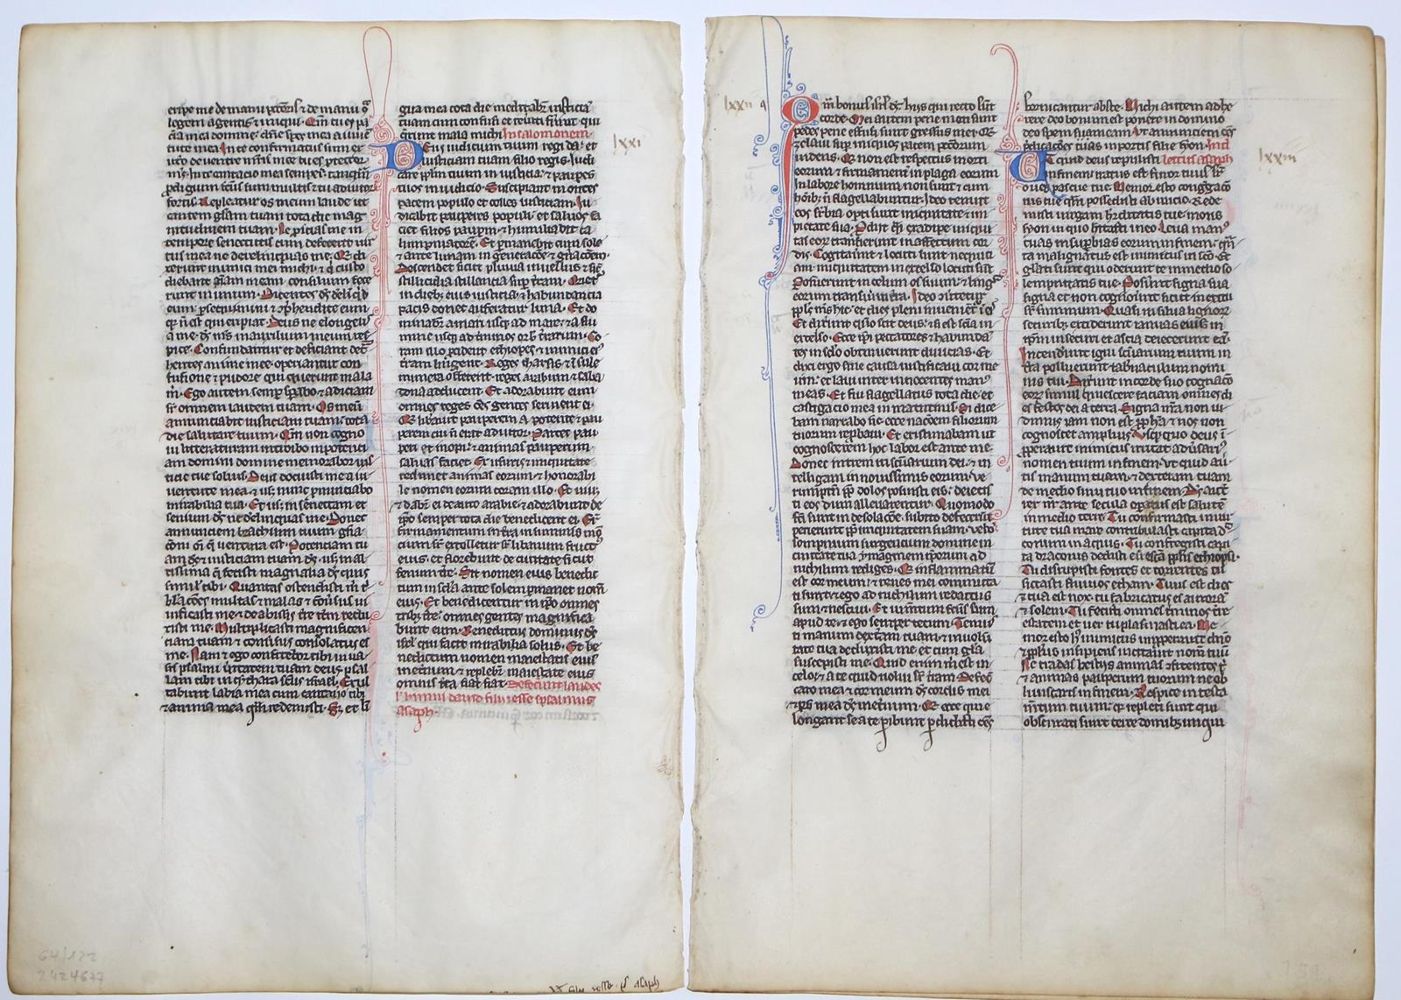 eripe me de manu peccatoris & de manu
legem agentis & iniqui. Qm tu es
mea domine. dne spes mea a iuuen
tute mea. In te confirmatus sum ex
utero de uentre mris mee tu es protector
ms. In te cantacio mea semper. tanquam
prodigium fcus sum multis & tu adiutor
fortis. Repleatur os meum laude ut
cantem glam tuam tota die mag
nitudinem tuam. Ne proicias me in
tempore senectutis cum defecerit uir
tus mea ne derelinquas me. Qr di
xerunt inimici mei michi. & q custo
diebant aiam meam. consilium fece
runt in unum. Dicentes ds dereliquid
eum persequimini & comprehendite eum.
qr n est qui eripiat. Deus ne elongeris
a me. ds ms in auxilium meum res
pice. Confundantur et deficiant det
hentes anime mee. operiantur con
fusione & pudore qui querunt mala
m. Ego autem semper sperabo & adiciam
sr omnem laudem tuam. Os meum
annunciabit iusticiam tuam. tota
die salutare tuum. Qm non cogno
ui litteraturam intrоibo in potenci
am domini domine memorabor ius
ticie tue solius. Deus docuisti me a iu
uentute mea. & usq nunc pnunciabo
mirabilia tua. Et usq in senectam et
senium ds ne derelinquas me. Donec
annunciem brachium tuum gna
oni omi q uentura est. Potenciam tu
am & iusticiam tuam ds usq in al
tissima q fecisti magnalia ds quis
similis tibi. Quantas ostendisti m tri
blacones multas & malas & conuersus ui
uificasti me & de abissis tre itm redu
xisti me. Multiplicasti magnificen
ciam tuam & conuersus consolatus es
me. Nam & ego confitebor tibi in ua
sis psalmi ueritatem tuam deus psal
lam tibi in cythara scus israel. Exul
tabunt labia mea cum cantauero tibi
& anima mea quam redemisti. Sz et li
gua mea tota die meditabr iusticia
tuam cum confusi et reueriti fuerint qui
querunt mala michi. In salomonem.
lxxi
Deus iudicium tuum regi da. et
iusticiam tuam filio regis. Iudi
care populum tuum in iusticia. & pauperes
tuos in iudicio. Suscipiant montes
pacem populo et colles iusticiam. Iu
dicabit pauperes populi. et saluos fa
ciet filios pauperum. & humiliabit ca
lumpniatorem. Et permanebit cum sole
& ante lunam in generacoe & generacoem.
Descendet sicut pluuia in uellus & sic
stillicidia stillancia super terram. Oriet
in diebus eius iusticia. & habundancia
pacis donec auferatur luna. Et do
minabr a mari usq ad mare. & a flu
mine usq ad terminos orbis terrarum. Co
ram illo procident ethiopes & inimici eius
terram lingent. Reges tharsis & insule
munera offerent. reges arabum & saba
dona adducent. Et adorabunt eum
omnes reges oes gentes seruient ei.
Qr liberauit pauperem a potente & pau
perem cui n erat adiutor. Parcet pau
peri et inopi. & animas pauperum
saluas faciet. Ex usuris & iniquitate
redimet animas eorum. & honorabi
le nomen eorum coram illo. Et uiuet
& dabr ei de auro arabie. & adorabunt de
ipo semper tota die benedicent ei. Et
firmamentum in terra in summis montium
eius. & florebunt de ciuitate sicut
fenum tre. Sit nomen eius benedic
tum in scla ante solem permanet nom
eius. Et benedicentur in ipo omnes
tribus tre. omnes gentes magnifica
bunt eum. Benedictus dominus ds
isrl qui facit mirabilia solus. Et be
nedictum nomen maiestatis eius
in eternum & replebr maiestate eius
omnis terra fiat fiat. Defecerunt laudes
hymni dauid filii iesse psalmus
asaph.
lxxii
Qm bonus isrl ds. hiis qui recto sunt
corde. Mei autem pene moti sunt
pedes. pene effusi sunt gressus mei. Qr
zelaui super iniquos pacem peccatorum
uidens. Qr non est respectus morti
eorum. & firmamentum in plaga eorum
In labore hominum non sunt & cum
hoibus n flagellabuntur. Ideo tenuit
eos superbia. operti sunt iniquitate & im
pietate sua. Prodiit quasi ex adipe iniqui
tas eor. transierunt in affectum cor
dis. Cogitauerunt & locuti sunt nequici
am. iniquitatem in excelso locuti sunt
Posuerunt in celum os suum. & lingua
eorum transiuit in terra. Ideo conuertet
Et dixerunt quomodo scit deus. & si est scia in
excelso. Ecce ipi peccatores & habunda
tes in seclo obtinuerunt diuicias. Et
dixi ergo sine causa iustificaui cor me
um. et laui inter innocentes man
meas. Et fui flagellatus tota die. et
castigacio mea in matutinis. Si dice
bam narrabo sic. ecce nacoem filiorum
tuorum reprobaui. Et existimabam ut
cognoscerem hoc labor est ante me.
Donec intrem in sanctuarium dei. & in
telligam in nouissimis eorum. Ve
rumptm propter dolos posuisti eis. deiecisti
eos dum alleuarentur. Quomodo
fci sunt in desolacoem. subito defecerunt
perierunt propter iniquitatem suam. Velud
sompnium surgencium domine in
ciuitate tua ymaginem ipsorum ad
nichilum rediges. Qr inflammatum
est cor meum. & renes mei commuta
ti sunt & ego ad nichilum redactus
sum & nesciui. Ut iumentum fcus sum
apud te. & ego semper tecum. Tenuis
ti manum dextram meam. & in uolun
tate tua deduxisti me. et cum gla
suscepisti me. Quid enim m est in
celo. & a te quid uolui sr tram. Defecit
caro mea & cor meum. ds cordis mei
& pars mea ds in eternum. Qr ecce qui e
longant se a te peribunt. perdidisti oes
fornicantur abs te. Michi autem adhe
rere deo bonum est. ponere in domino
deo spem suam eam. Ut annunciem oes
predicacoes tuas in portis filie syon. Intel
lectus asaph
lxxiii
Ut quid deus repulisti
in finem. iratus est furor tuus sr
oues pascue tue. Memor esto congregacois
tue. qm possedisti ab inicio. Rede
misti uirgam hereditatis tue. mons
syon in quo habitasti in eo. Leua manus
tuas in superbias eorum in finem. quan
ta malignatus est inimicus in sco. Et
gloriati sunt qui oderunt te in medio so
lempnitatis tue. Posuerunt signa sua
signa. et non cognouerunt sicut in exitu
sr summum. Quasi in silua lignorum
securibus exciderunt ianuas eius in
ipm. in securi et ascia deiecerunt eam
Incenderunt igni sanctuarium tuum in
terra polluerunt tabernaculum nomi
nis tui. Dixerunt in corde suo cognaco
eor simul quiescere faciamus omnes di
es festos dei a terra. Signa nra non ui
dimus iam non est propheta & nos non
cognoscet amplius. Usqequo deus i
properabit inimicus irritat aduersarius
nomen tuum in finem. Ut quid auer
tis manum tuam. & dexteram tuam
de medio sinu tuo in finem. Ds aute
rex nr ante secula operatus est salutem
in medio terre. Tu confirmasti in uir
tute tua mare. contribulasti capita dra
conum in aquis. Tu confregisti capi
ta draconis. dedisti eum escam populis ethiopu.
Tu disrupisti fontes & torrentes. tu
siccasti fluuios etham. Tuus est dies
& tua est nox. tu fabricatus es aurora
& solem. Tu fecisti omnes terminos tre
estatem et uer tu plasmasti ea. Me
mor esto h. inimicus improperauit dno
& populus insipiens incitauit nomen tuum
Ne tradas bestiis animas confitentes tibi
& animas pauperum tuorum ne ob
liuiscaris in finem. Respice in testa
mentum tuum. qr repleti sunt qui
obscurati sunt terre domibus iniqui
64/122
2424677